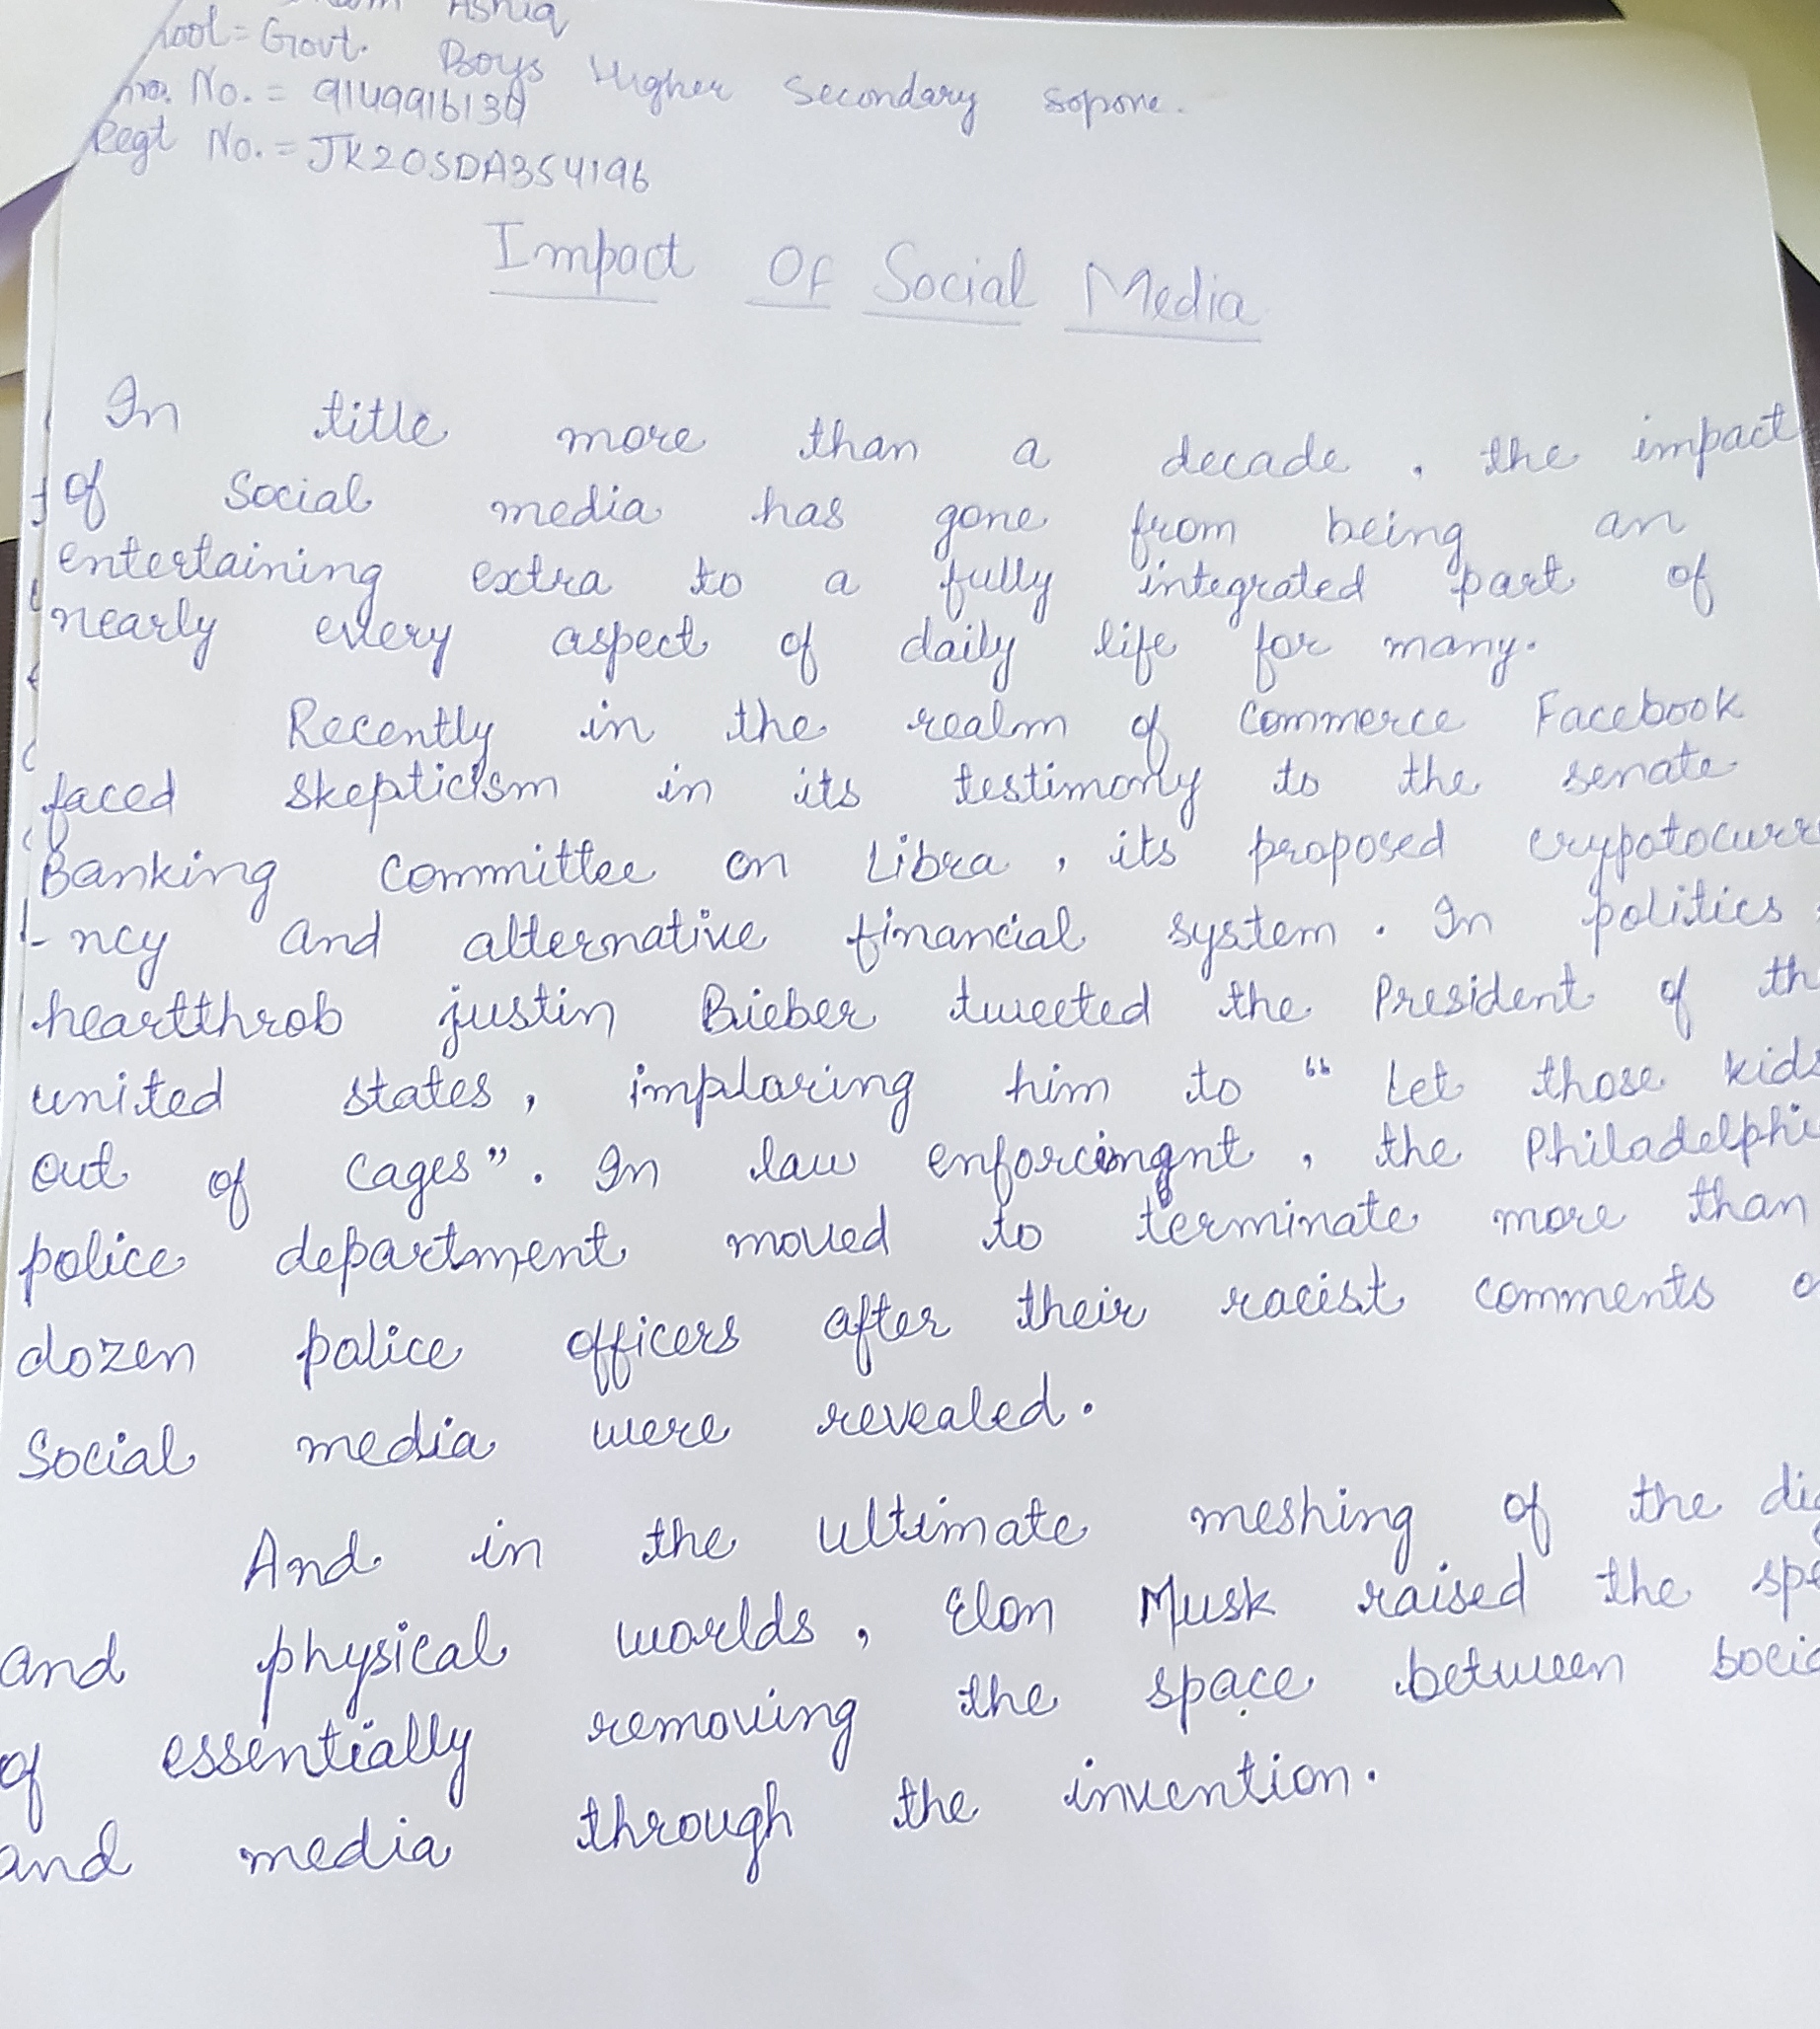 Ashiq
hool = Govt. Boys Higher Secondary sopore.
No. = 9149916139
Regt No. = JK20SDA354196
Impact Of Social Media
In title more than a decade, the impact
of Social media has gone from being an
entertaining extra to a fully integrated part of
nearly every aspect of daily life for many.
Recently in the realm of Commerce Facebook
faced skepticism in its testimony to the senate
Banking Committee on Libra, its proposed crypotocurre
-ncy and alternative financial system. In politics
heartthrob justin Bieber tweeted the President of th
united states, imploring him to "Let those kids
out of Cages". In law enforcingnt, the Philadelphi
police department moved to terminate more than
dozen police officers after their racist comments o
Social media were revealed.
And in the ultimate meshing of the dig
and physical worlds, Elon Musk raised the spe
of essentially removing the space between socia
and media through the invention.